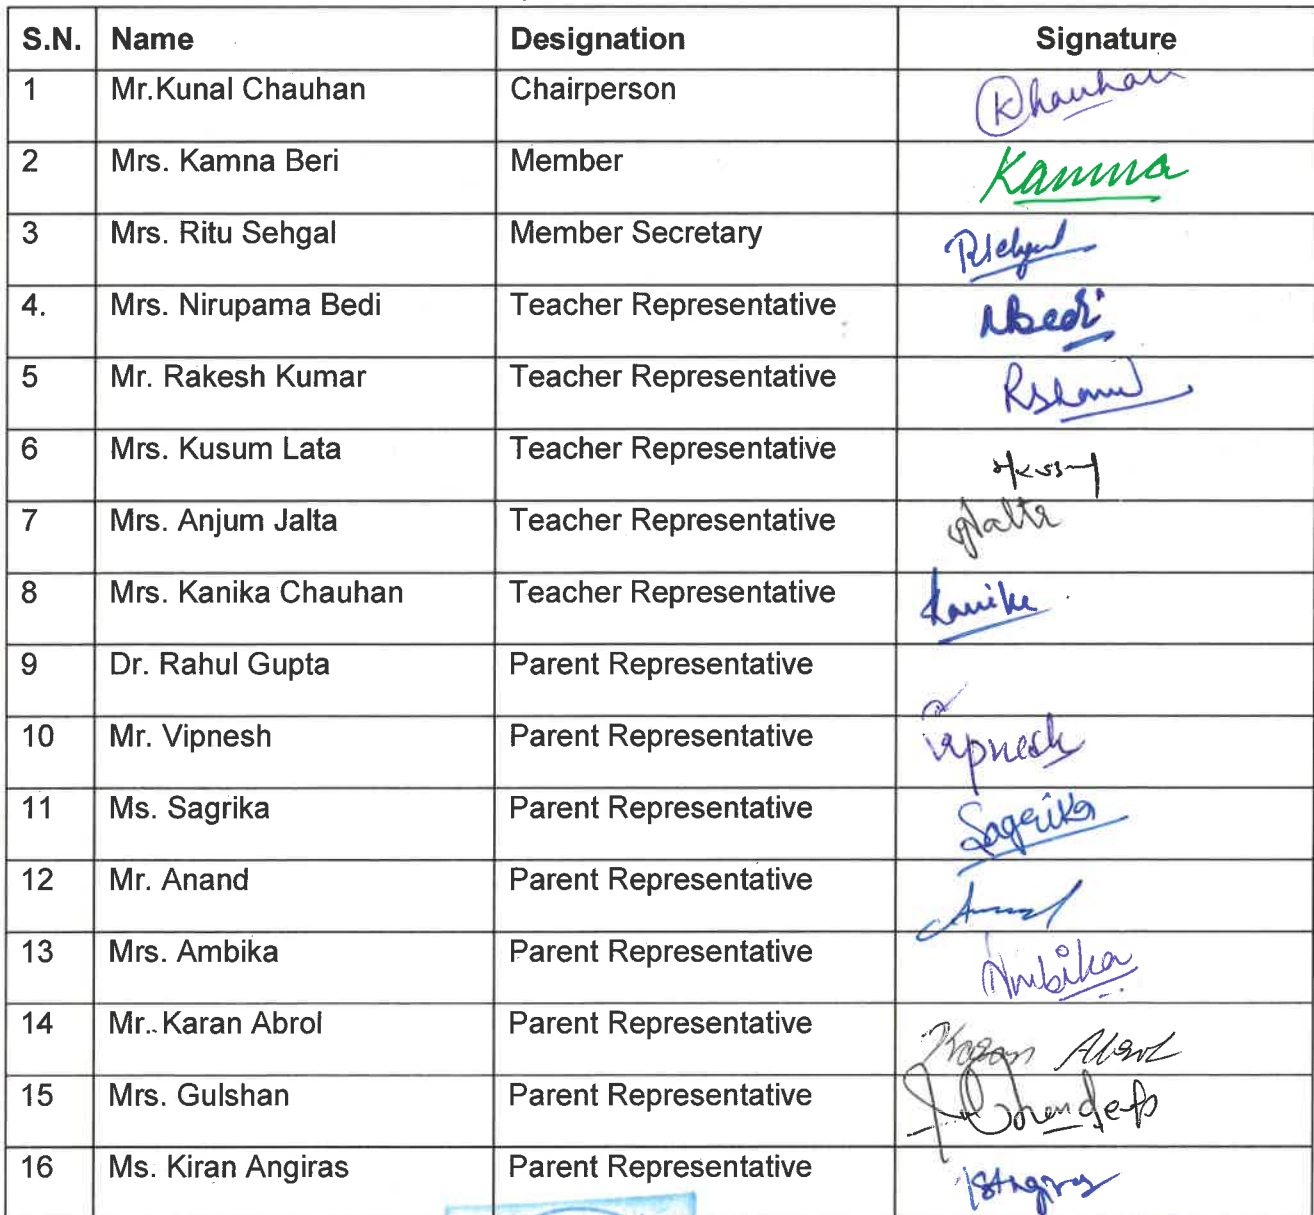 S.N. Name Designation Signature
1 Mr.Kunal Chauhan Chairperson KChauhan
2 Mrs. Kamna Beri Member Kamna
3 Mrs. Ritu Sehgal Member Secretary
4. Mrs. Nirupama Bedi Teacher Representative NBedi
5 Mr. Rakesh Kumar Teacher Representative
6 Mrs. Kusum Lata Teacher Representative
7 Mrs. Anjum Jalta Teacher Representative
8 Mrs. Kanika Chauhan Teacher Representative Kanika
9 Dr. Rahul Gupta Parent Representative
10 Mr. Vipnesh Parent Representative Vipnesh
11 Ms. Sagrika Parent Representative Sagrika
12 Mr. Anand Parent Representative
13 Mrs. Ambika Parent Representative Ambika
14 Mr. Karan Abrol Parent Representative Karan Abrol
15 Mrs. Gulshan Parent Representative
16 Ms. Kiran Angiras Parent Representative